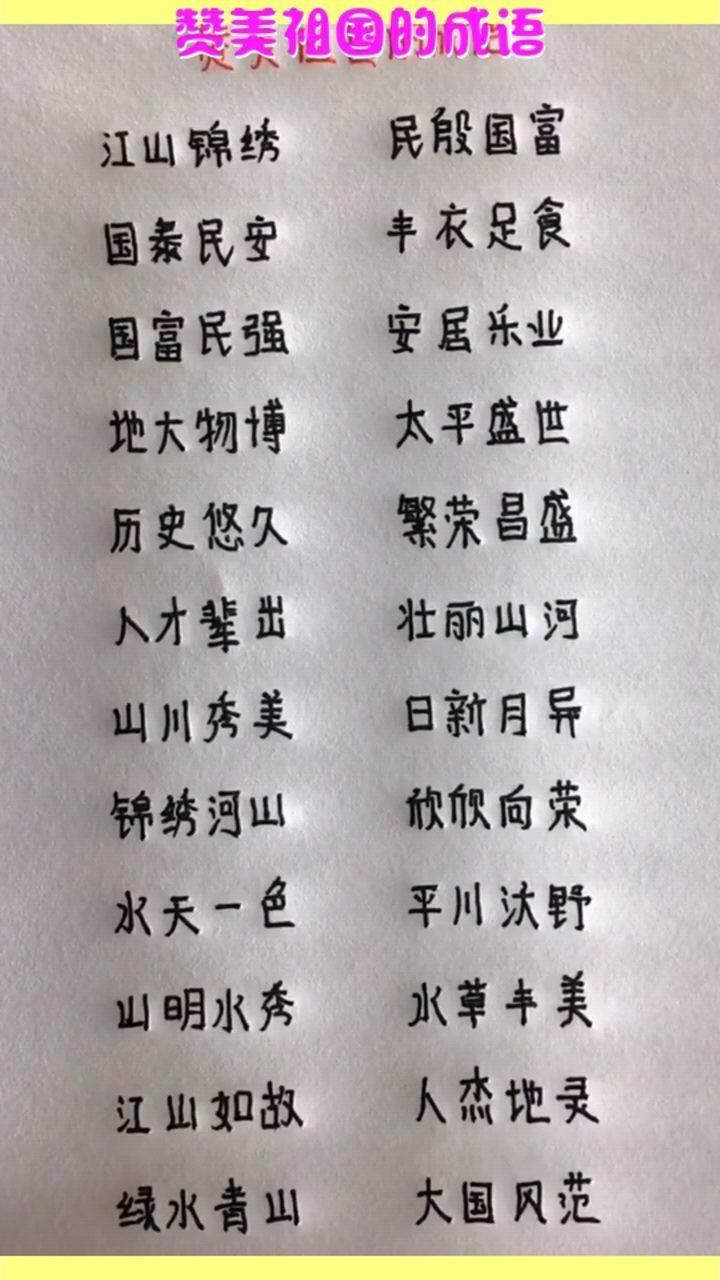 赞美祖国的成语
江山锦绣 民殷国富
国泰民安 丰衣足食
国富民强 安居乐业
地大物博 太平盛世
历史悠久 繁荣昌盛
人才辈出 壮丽山河
山川秀美 日新月异
锦绣河山 欣欣向荣
水天一色 平川沃野
山明水秀 水草丰美
江山如故 人杰地灵
绿水青山 大国风范